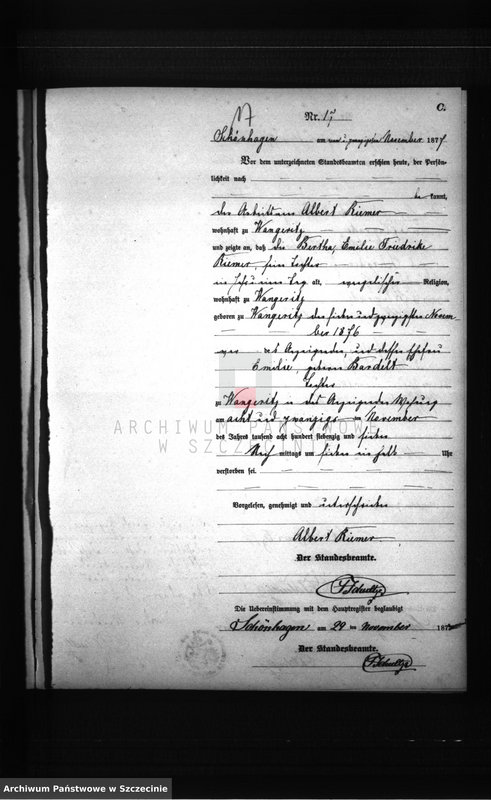 C.
Nr. 17
Schönhagen am neun u. zwanzigsten November 1877
Vor dem unterzeichneten Standesbeamten erschien heute, der Persön-
lichkeit nach
be kannt,
der Arbeitsmann Albert Riemer
wohnhaft zu Wangeritz
und zeigte an, daß die Bertha, Emilie Friedrike
Riemer, seine Tochter
ein Jahr einen Tag alt, evangelischer Religion,
wohnhaft zu Wangeritz
geboren zu Wangeritz den sieben und zwanzigsten Novem
ber 1876
des Anzeigenden, und dessen Ehefrau
Emilie, geborene Bardelt
Tochter
zu Wangeritz in des Anzeigenden Wohnung
am acht und zwanzigs ten November
des Jahres tausend acht hundert siebenzig und sieben
Nach mittags um sieben ein halb Uhr
verstorben sei.
Vorgelesen, genehmigt und unterschrieben
Albert Riemer
Der Standesbeamte.
Die Uebereinstimmung mit dem Hauptregister beglaubigt
Schönhagen am 29 ten November 187
Der Standesbeamte.
ARCHIWUM PAŃSTWOWE
W SZCZECINIE
Archiwum Państwowe w Szczecinie